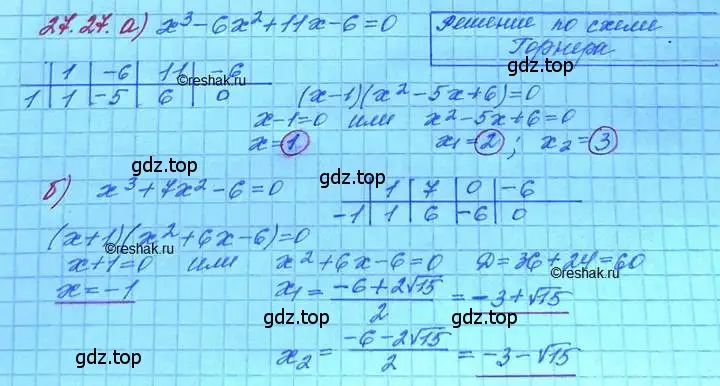 27.27. а) x³-6x²+11x-6=0
Решение по схеме
Горнера
| 1 | -6 | 11 | -6
1 | 1 | -5 | 6 | 0
©reshak.ru
(x-1)(x²-5x+6)=0
x-1=0 или x²-5x+6=0
x=1 x₁=2; x₂=3
gdz.top gdz.top gdz.top
б) x³+7x²-6=0
gdz.top
| 1 | 7 | 0 | -6
-1 | 1 | 6 | -6 | 0
(x+1)(x²+6x-6)=0
x+1=0 или x²+6x-6=0 D=36+24=60
©reshak.ru ©reshak.ru
x=-1 x₁=(-6+2√15)/2=-3+√15
x₂=(-6-2√15)/2=-3-√15
gdz.top gdz.top gdz.top